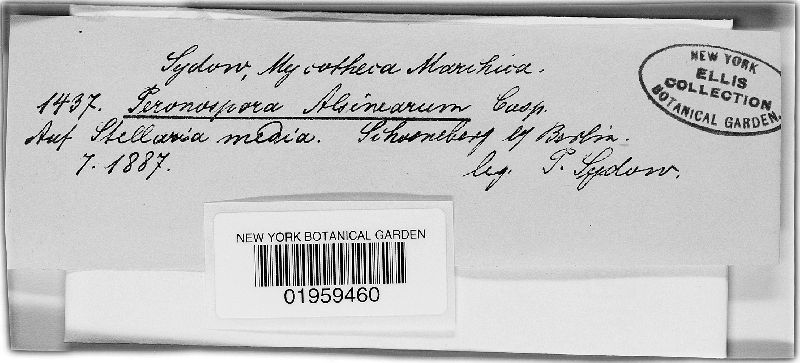 Sydow, Mycotheca Marchica.
1437. Peronospora Alsinearum Casp.
Auf Stellaria media. Schoeneberg by Berlin.
7. 1887.
leg. P. Sydow.
NEW YORK
ELLIS
COLLECTION
BOTANICAL GARDEN.
NEW YORK BOTANICAL GARDEN
01959460